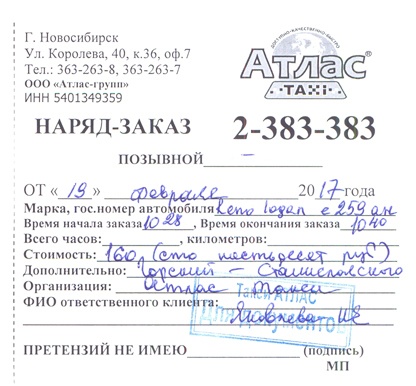 Г. Новосибирск
Ул. Королева, 40, к.36, оф.7
Тел.: 363-263-8, 363-263-7
ООО «Атлас-групп»
ИНН 5401349359
АТЛАС ®
ТАХI
НАРЯД-ЗАКАЗ 2-383-383
ПОЗЫВНОЙ –
ОТ « 19 » февраля 2017 года
Марка, гос.номер автомобиля Рено Логан с 259 ан
Время начала заказа 10 28, Время окончания заказа 10 40
Всего часов: , километров:
Стоимость: 160 (сто шестьдесят руб)
Дополнительно: –
Организация: Атлас Такси
ФИО ответственного клиента:
Такси АТЛАС
ДЛЯ ДОКУМЕНТОВ
ПРЕТЕНЗИЙ НЕ ИМЕЮ (подпись)
МП